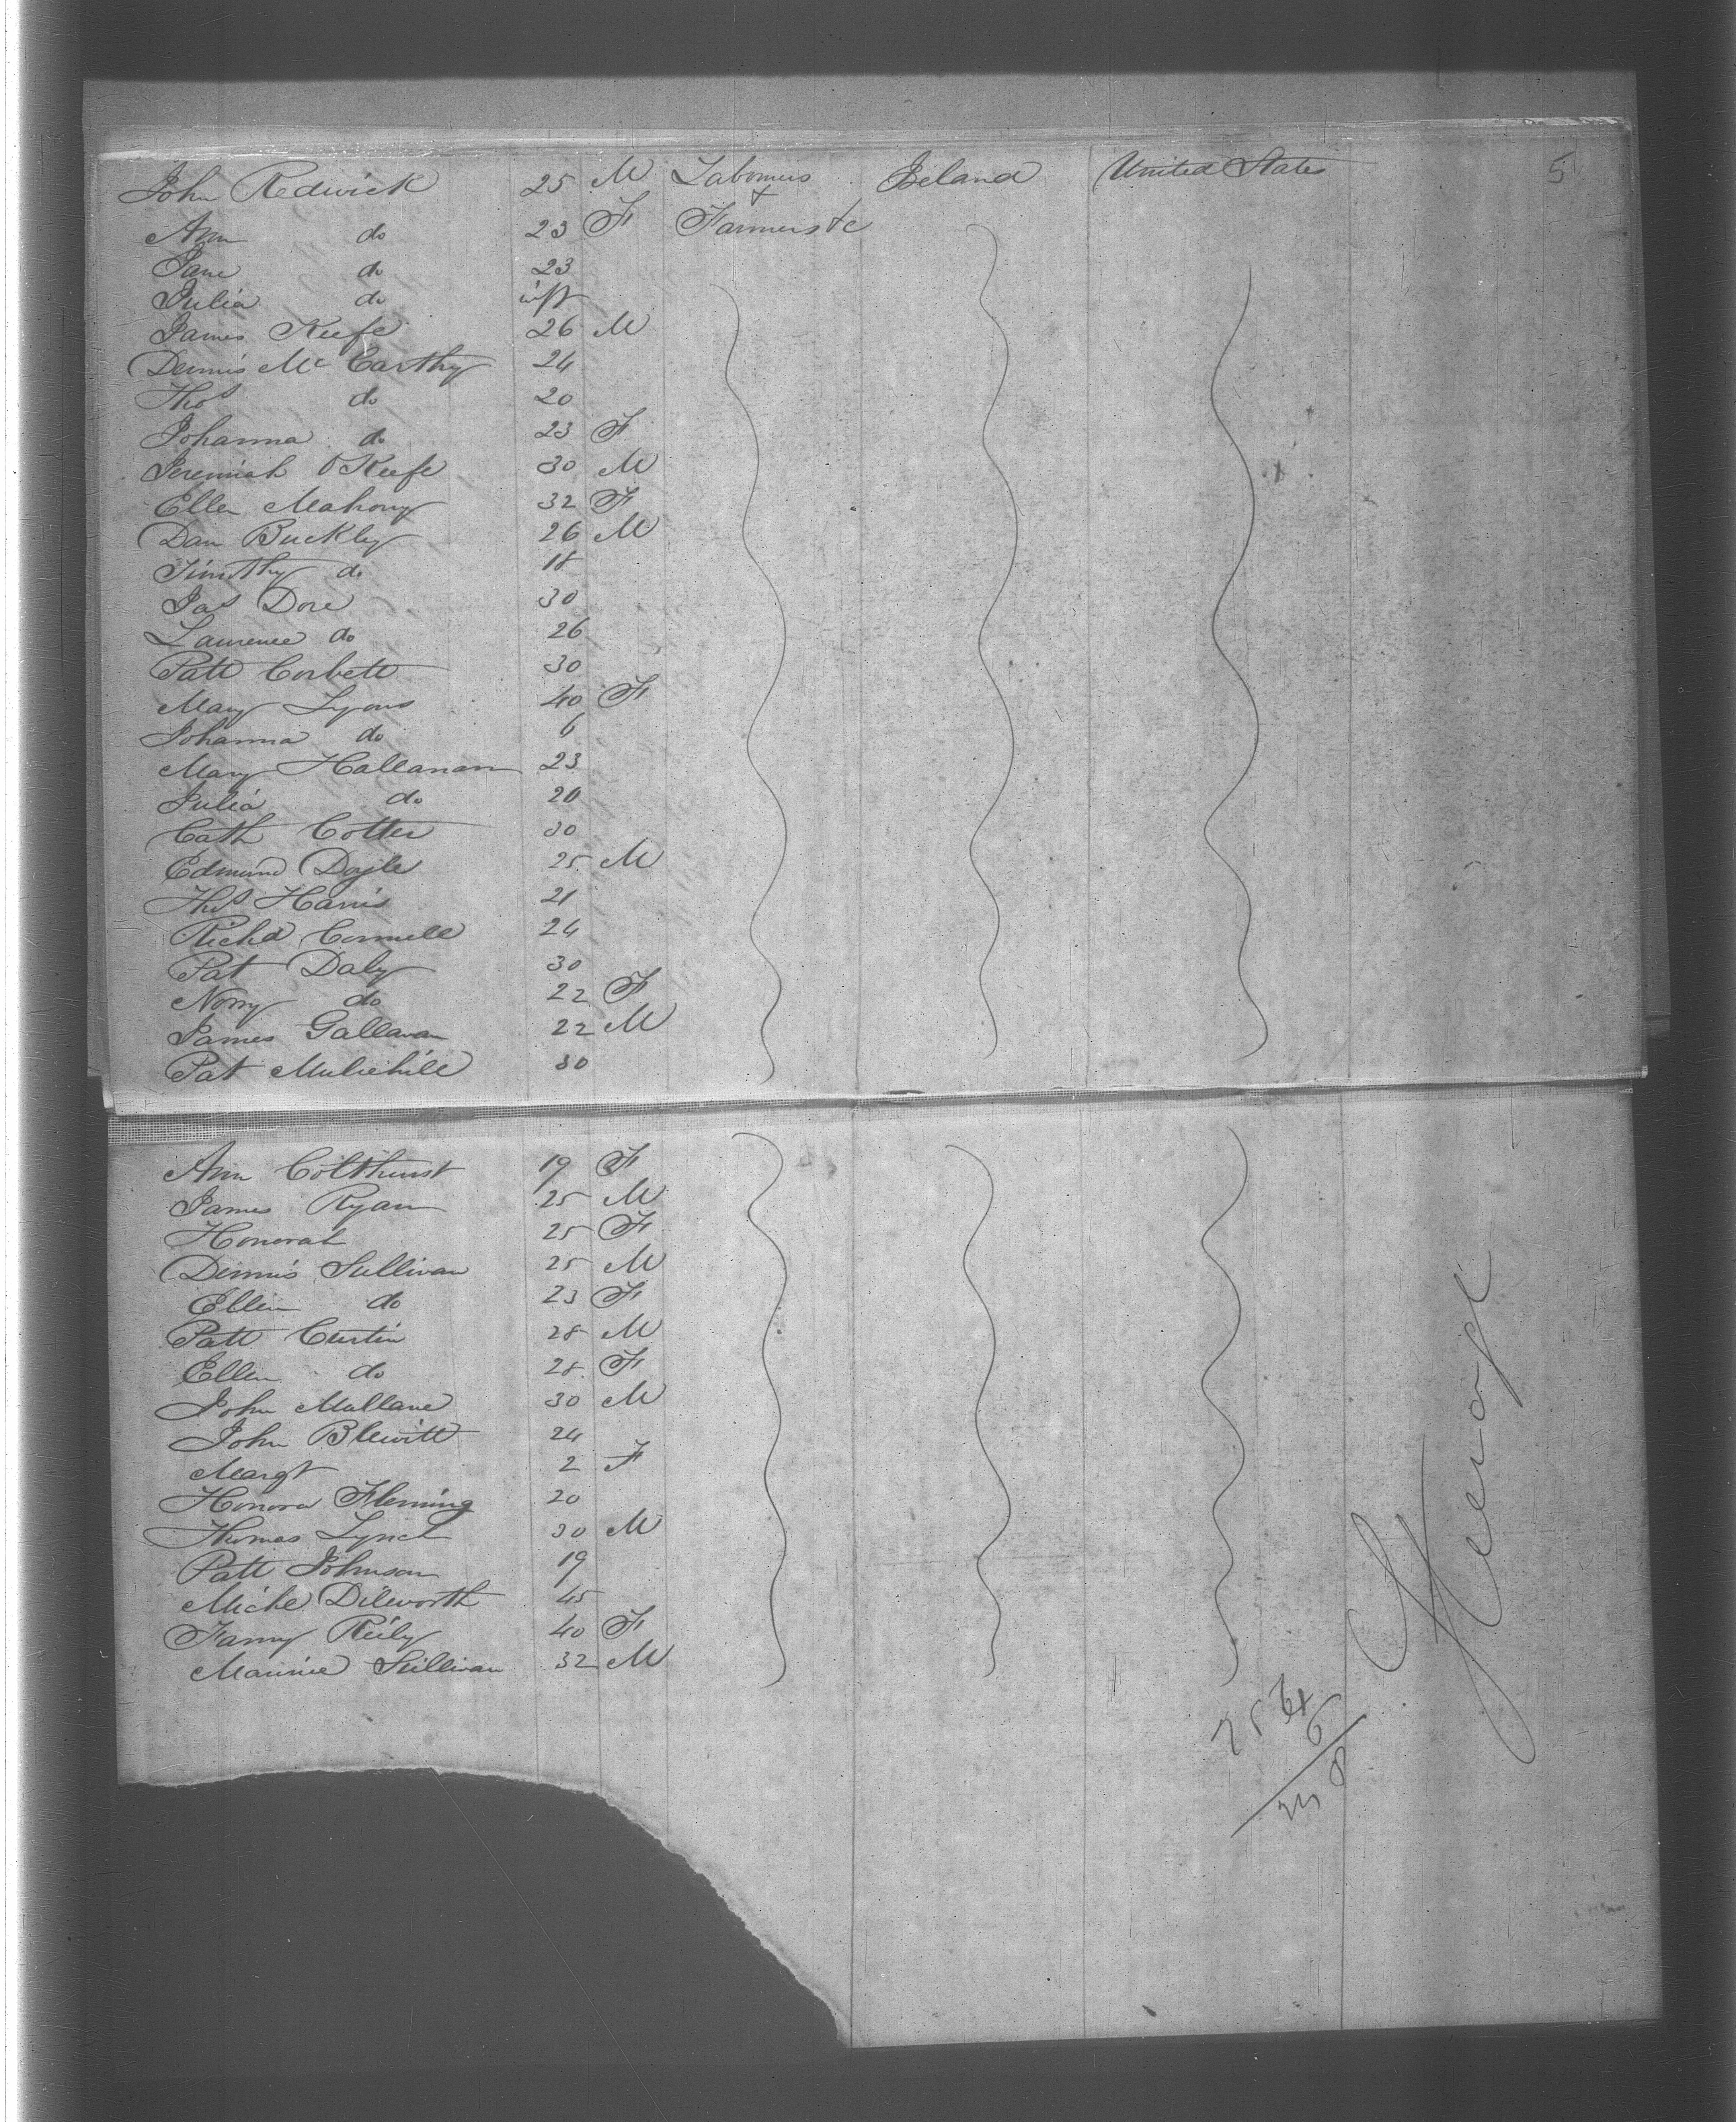 John Redwick 25 M Labourers Ireland United States 5
Ann do 23 F & Farmers &c
Jane do 23
Julia do inft
James Keefe 26 M
Dennis Mc Carthy 24
Thos do 20
Johanna do 23 F
Jeremiah O'Keefe 30 M
Ellen Mahony 32 F
Dan Buckley 26 M
Timothy do 18
Jas Dore 30
Laurence do 26
Patt Corbett 30
Mary Lyons 40 F
Johanna do 6
Mary Hallanan 23
Julia do 20
Cath Cotter 30
Edmund Doyle 25 M
Thos Harris 21
Richd Connell 24
Pat Daly 30
Norry do 22 F
James Gallavan 22 M
Pat Mulichill 30
Ann Colthurst 19 F
James Ryan 25 M
Honorah 25 F
Dennis Sullivan 25 M
Ellen do 23 F
Patt Curtin 28 M
Ellen do 28 F
John Mullane 30 M
John Blewitt 24
Margt 2 F
Honora Fleming 20
Thomas Lynch 30 M
Patt Johnson 19
Michl Dilworth 45
Fanny Reily 40 F
Maurice Sullivan 32 M